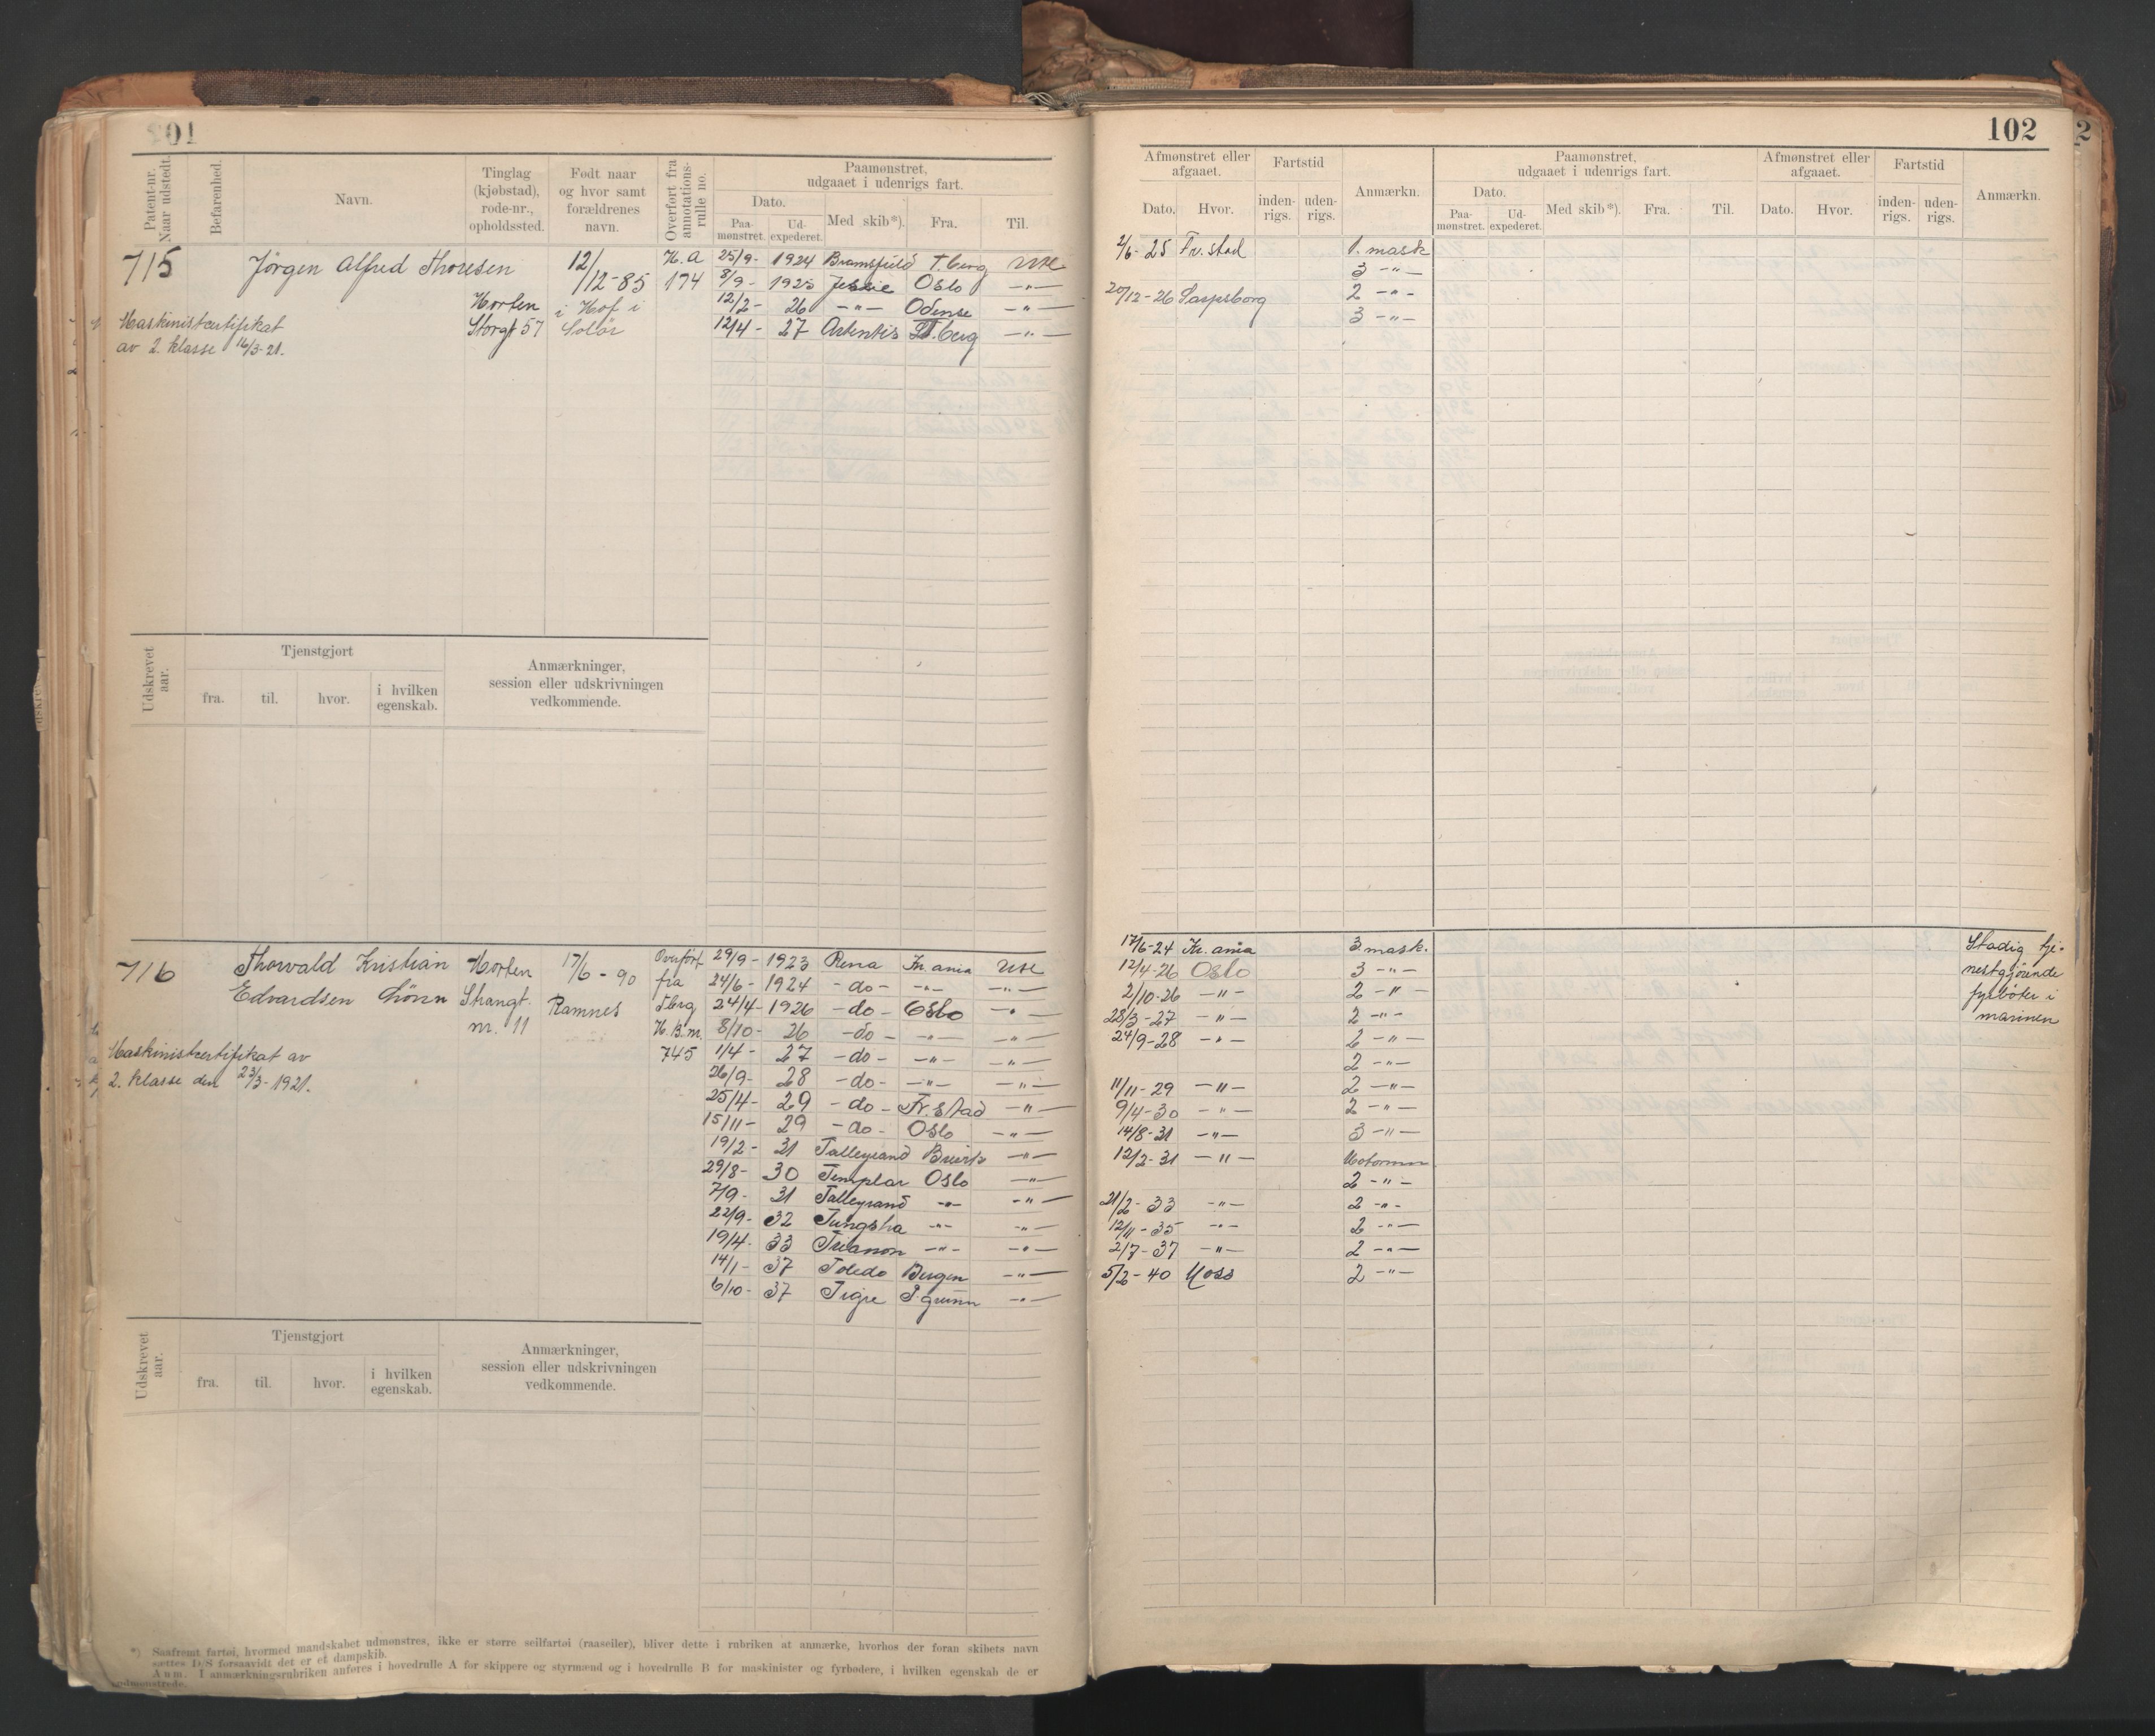 01
Patent-nr. Naar udstedt.
Befarenhed.
Navn.
Tinglag (kjøbstad), rode-nr., opholdssted.
Født naar og hvor samt forældrenes navn.
Overført fra annotations-rulle no.
Paamønstret, udgaaet i udenrigs fart.
Dato.
Paa-mønstret.
Ud-expederet.
Med skib*).
Fra.
Til.
715 Jörgen Alfred Thoresen 12/12-85 H.A 174
Horten Storgt 57
i Hof i Solör
Maskinistcertifikat
av 2. klasse 16/3-21.
25/9- 1924 T.berg Utl
8/9- 1925 Jessie Oslo -"-
12/2- 26 -"- Odense -"-
12/4- 27 -"-
Udskrevet aar.
Tjenstgjort
fra. til. hvor. i hvilken egenskab.
Anmærkninger, session eller udskrivningen vedkommende.
716 Thorvald Kristian Edvardsen Lönn
Horten Strangt. nr. 11
17/6-90 Ramnes
Overfört fra Tbrg H.B.m. 745
Maskinistcertifikat av
2. klasse den 23/3-1921.
29/9- 1923 Rena Kr.ania Utl
24/6- 1924 -do- -"- -"-
24/4- 1926 -do- Oslo -"-
8/10- 26 -do- -"- -"-
1/4- 27 -do- -"- -"-
26/9- 28 -do- -"- -"-
25/4- 29 -do- Fr.stad -"-
15/11- 29 -do- Oslo -"-
19/2- 31 Talleyrand Brevik -"-
29/8- 30 Templar Oslo -"-
7/9- 31 Talleyrand -"- -"-
22/9- 32 Tungsha -"- -"-
19/4- 33 Trianon -"- -"-
14/1- 37 Toledo Bergen -"-
6/10- 37 Tigre P.grunn -"-
Udskrevet aar.
Tjenstgjort
fra. til. hvor. i hvilken egenskab.
Anmærkninger, session eller udskrivningen vedkommende.
*) Saafremt fartøi, hvormed mandskabet udmønstres, ikke er større seilfartøi (raaseiler), bliver dette i rubriken at anmærke, hvorhos der foran skibets navn
sættes D/S forsaavidt det er et dampskib.
Anm. I anmærkningsrubriken anføres i hovedrulle A for skippere og styrmænd og i hovedrulle B for maskinister og fyrbødere, i hvilken egenskab de er
udmønstrede.
102
2
Afmønstret eller afgaaet.
Fartstid
Anmærkn.
Paamønstret, udgaaet i udenrigs fart.
Afmønstret eller afgaaet.
Fartstid
Anmærkn.
Dato. Hvor. inden-rigs. uden-rigs.
Dato.
Paa-mønstret. Ud-expederet. Med skib*). Fra. Til. Dato. Hvor. inden-rigs. uden-rigs.
2/6-25 Fr.stad 1. mask
3 -"-
20/12-26 Sarpsborg 2 -"-
3 -"-
17/6-24 Kr.ania 3 mask.
12/4-26 Oslo 3 -"-
2/10-26 -"- 2 -"-
28/3-27 -"- 2 -"-
24/9-28 -"- 2 -"-
2 -"-
11/11-29 -"- 2 -"-
9/4-30 -"- 2 -"-
14/8-31 -"- 3 -"-
12/2-31 -"- Motormn
2 -"-
21/2-33 -"- 2 -"-
12/11-35 -"- 2 -"-
2/7-37 -"- 2 -"-
5/2-40 Moss 2 -"-
Stadig tje-
nestgjørende
fyrböter i
marinen